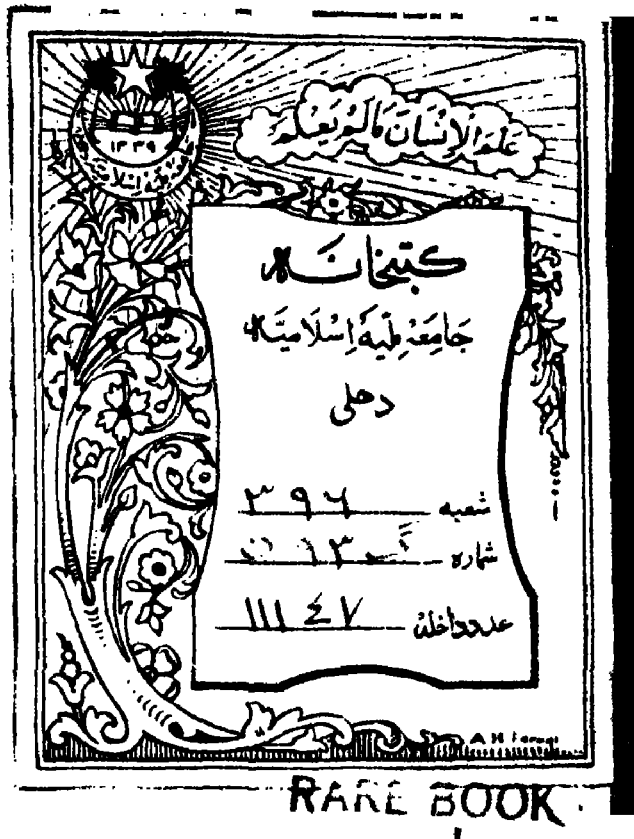 عَلَّمَ الْاِنْسَانَ مَا لَمْ يَعْلَمْ
۱۳۳۹
کتبخانہ
جَامِعَہ مِلّیَہ اِسْلَامِیَہ
دہلی
شعبہ ۳۹۶
شمارہ
عدد داخلہ ۱۱۱٤۷
RARE BOOK